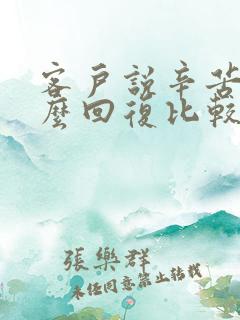 客戶說辛苦
麼回復比較
張樂群
未经同意禁止转载